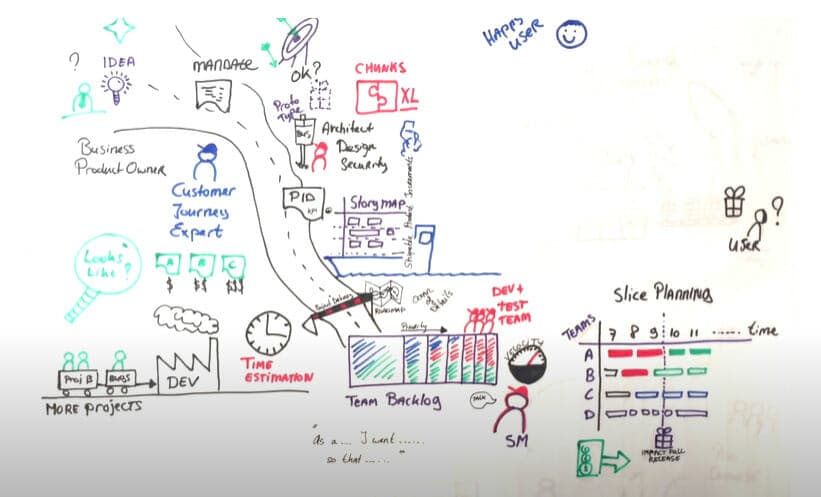 HAPPY
USER
?
IDEA
MANDATE
OK?
Proto
TYPE
CHUNKS
XL
BUS
Architect
Design
Security
Business
Product Owner
Customer
Journey
Expert
PID
Story map
Shippable Product Increments
?
USER
Looks
Like?
A
B
C
$
$$
$$$
ROADMAP
Ocean
of
Details
DEV +
TEST
TEAM
Priority
VELOCITY
TIME
ESTIMATION
Proj B
BUGS
DEV
MORE Projects
TEAM BACKLOG
TALK
SM
"As a .... I want ......
so that ......"
Slice PLANNING
TEAMS
7 8 9 10 11 ...... time
A
B
C
D
IMPACT FULL
RELEASE